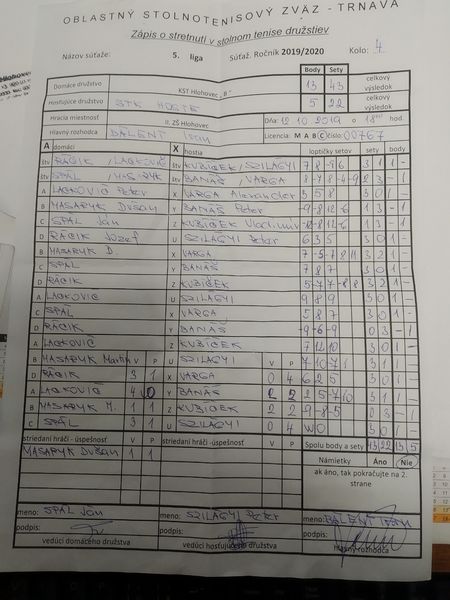 OBLASTNÝ STOLNOTENISOVÝ ZVÄZ - TRNAVA
Zápis o stretnutí v stolnom tenise družstiev
Názov súťaže: 5. liga Súťaž. Ročník 2019/2020 Kolo: 4
Body Sety
Domáce družstvo KST Hlohovec „B" 13 43 celkový výsledok
Hosťujúce družstvo STK HOSTE 5 22 celkový výsledok
Hracia miestnosť II. ZŠ Hlohovec Dňa: 12 10 2019 o hod.
Hlavný rozhodca BALENT Ivan Licencia: M A B C číslo 00767
A domáci X hostia loptičky setov sety body
štv RÁCIK, LACKOVIČ štv KUBÍČEK/SZILÁGYI 7 8 -9 6 3 1 1 -
štv SPÁL, MASARYK štv BANÁŠ, VARGA 8 -7 8 -4 -9 2 3 - 1
A LACKOVIČ Peter X VARGA Alexander 3 5 8 3 0 1 -
B MASARYK Dušan Y BANÁŠ Peter -9 -8 12 -6 1 3 - 1
C SPÁL Ján Z KUBÍČEK Vladimír 1 3 - 1
D RÁCIK Jozef U SZILÁGYI Peter 6 3 5 3 0 1 -
B MASARYK D. X VARGA 7 -5 -7 8 11 3 2 1 -
C SPÁL Y BANÁŠ 7 8 7 3 0 1 -
D RÁCIK Z KUBÍČEK 5 -7 7 -8 8 3 2 1 -
A LACKOVIČ U SZILÁGYI 9 8 9 3 0 1 -
C SPÁL X VARGA 5 8 7 3 0 1 -
D RÁCIK Y BANÁŠ -9 -6 -9 0 3 - 1
A LACKOVIČ Z KUBÍČEK 7 12 10 3 0 1 -
B MASARYK Martin V P U SZILÁGYI V P 3 1 1 -
D RÁCIK 3 1 X VARGA 0 4 6 2 5 3 0 1 -
A LACKOVIČ 4 0 Y BANÁŠ 2 2 3 1 1 -
B MASARYK M. 1 1 Z KUBÍČEK 2 2 -9 -8 -5 0 3 - 1
C SPÁL 3 1 U SZILÁGYI 0 4 WO 3 0 1 -
striedaní hráči - úspešnosť V P striedaní hráči - úspešnosť V P Spolu body a sety 43 22 13 5
MASARYK Dušan 1 1 Námietky Áno Nie
ak áno, tak pokračujte na 2. strane
meno: SPÁL Ján meno: SZILÁGYI Peter meno: BALENT Ivan
podpis: podpis: podpis:
vedúci domáceho družstva vedúci hosťujúceho družstva hlavný rozhodca